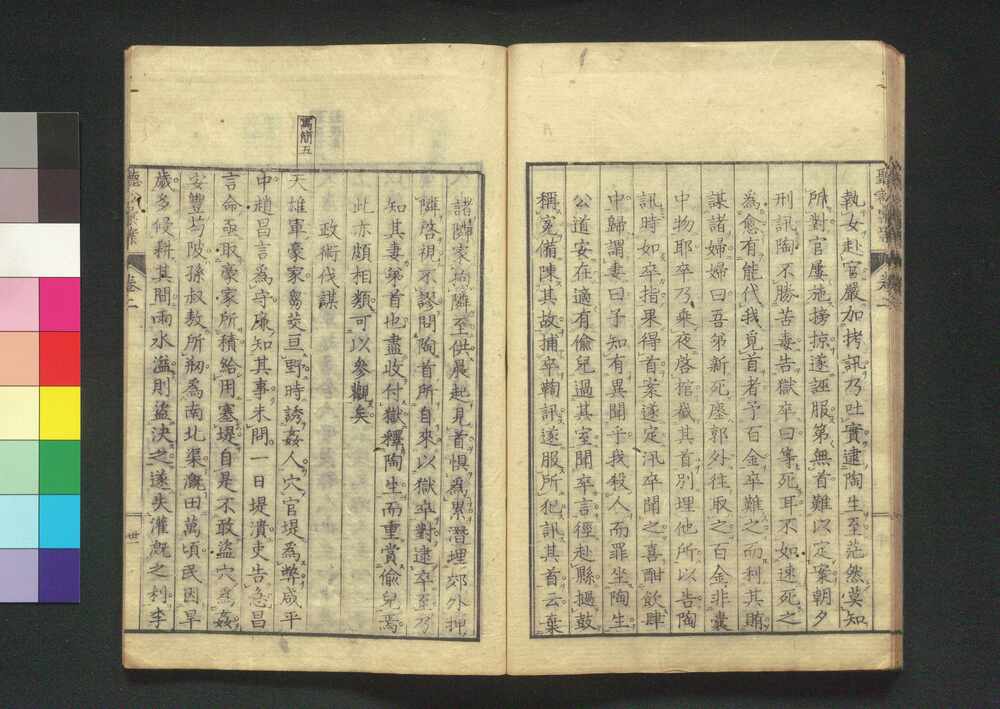 執女赴官嚴加拷訊乃吐實逮陶生至茫然莫知
所對官屢施搒掠遂誣服第無首難以定案朝夕
刑訊陶不勝苦毒告獄卒曰等死耳不如速死之
為愈有能代我覓首者予百金卒難之而利其賄
謀諸婦婦曰吾弟新死塟郭外往取之百金非囊
中物耶卒乃乘夜啓棺截其首別埋他所以告陶
訊時如卒指果得首案遂定汛卒聞之喜酣飲肆
中歸謂妻曰子知有異聞乎我殺人而罪坐陶生
公道安在適有偷兒過其室聞卒言徑赴縣撾鼓
稱冤備陳其故捕卒鞫訊遂服所犯訊其首云棄
諸隣家拘隣至供晨起見首惧為累潛埋郊外押
隣啓視不謬問陶首所自來以獄卒對逮卒至乃
知其妻弟首也盡收付獄釋陶生而重賞偷兒焉
此亦頗相類可以參觀矣
政術伐謀
天雄軍豪家芻茭亘野時誘姦人穴官堤為弊咸平
中趙昌言為守廉知其事未問一日堤潰吏告急昌
言命亟取豪家所積給用塞堤自是不敢盜穴為姦
安豐芍陂孫叔敖所剏為南北渠溉田萬頃民因旱
歲多侵耕其間雨水溢則盜決之遂失灌溉之利李
卷二
卷二
卅一